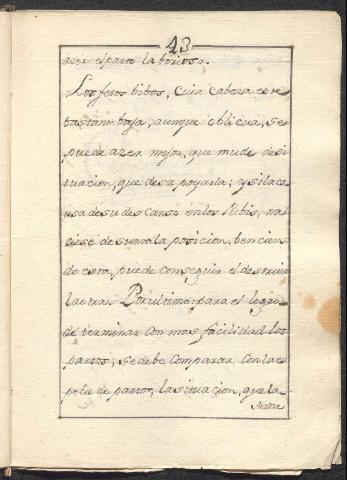 43
azer el parto laborioso.
Los fetos bibos, cuia cabeza este
bastante baja, aunque oblicua, se
puede azer mejor, que mude de si
tuacion, que desapoyarla; y si la ca
usa de su descanso en los Pubis, na
ciese de su mala posicion, bencien
do esta, puede conseguir el destruir
la otra. Por ultimo: para el logro
de terminar con mas facilidad los
partos; se debe comparar con la es
pecie de parto, la situacion, que la